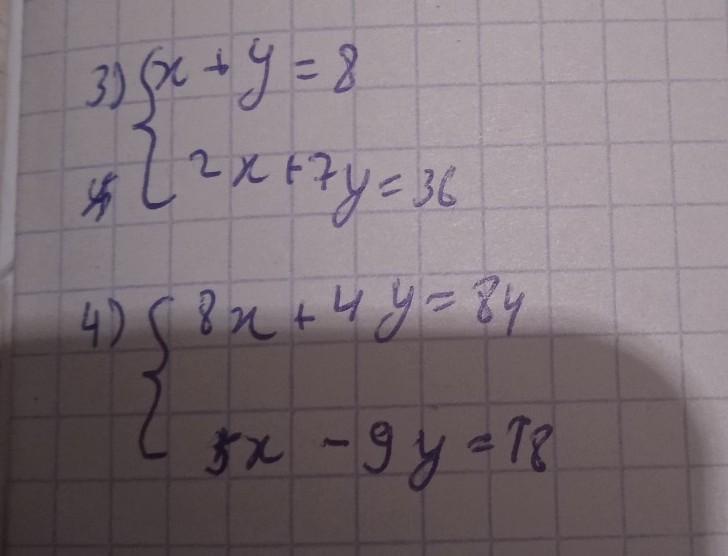 3) { x + y = 8
2x + 7y = 36
4) { 8x + 4y = 84
5x - 9y = 78